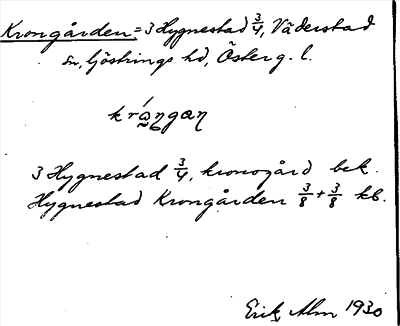 Krongården = 3 Hygnestad 3/4, Väderstad
sn, Göstrings hd, Österg. l.
krångan
3 Hygnestad 3/4, kronogård bek.
Hygnestad Krongården 3/8 + 3/8 kb.
Erik Alm 1930